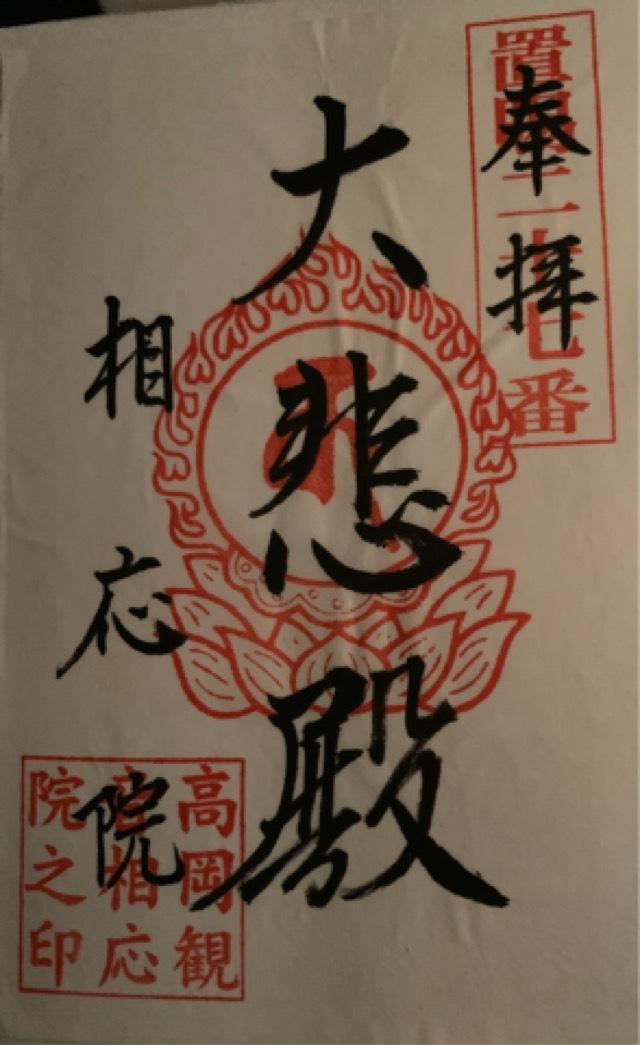 奉拝
置賜二十七番
大悲殿
相応院
高岡観
音相応
院之印